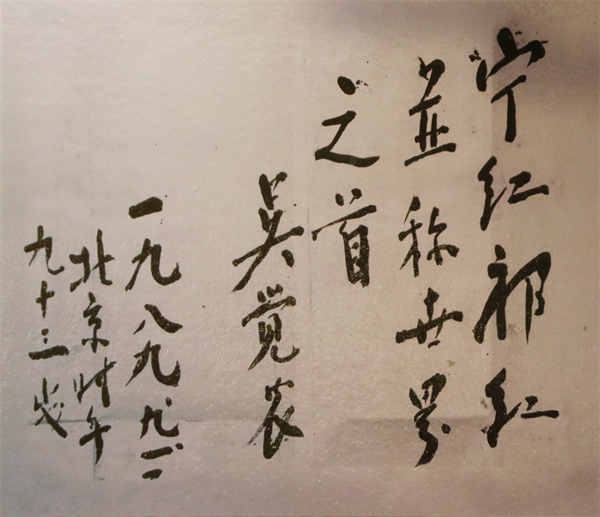 宁红祁红
並称世界
之首
吴觉农
一九八九、九、二
北京时年
九十三岁